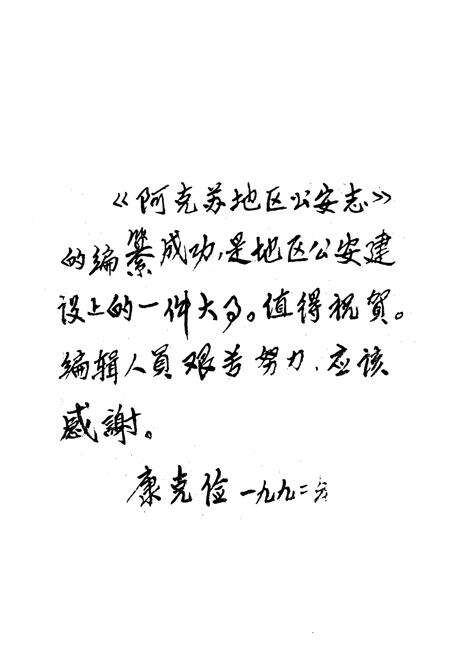 《阿克苏地区公安志》
的编纂成功,是地区公安建
设上的一件大事。值得祝賀。
编辑人員艰苦努力、应该
感謝。
康克俭 一九九二年